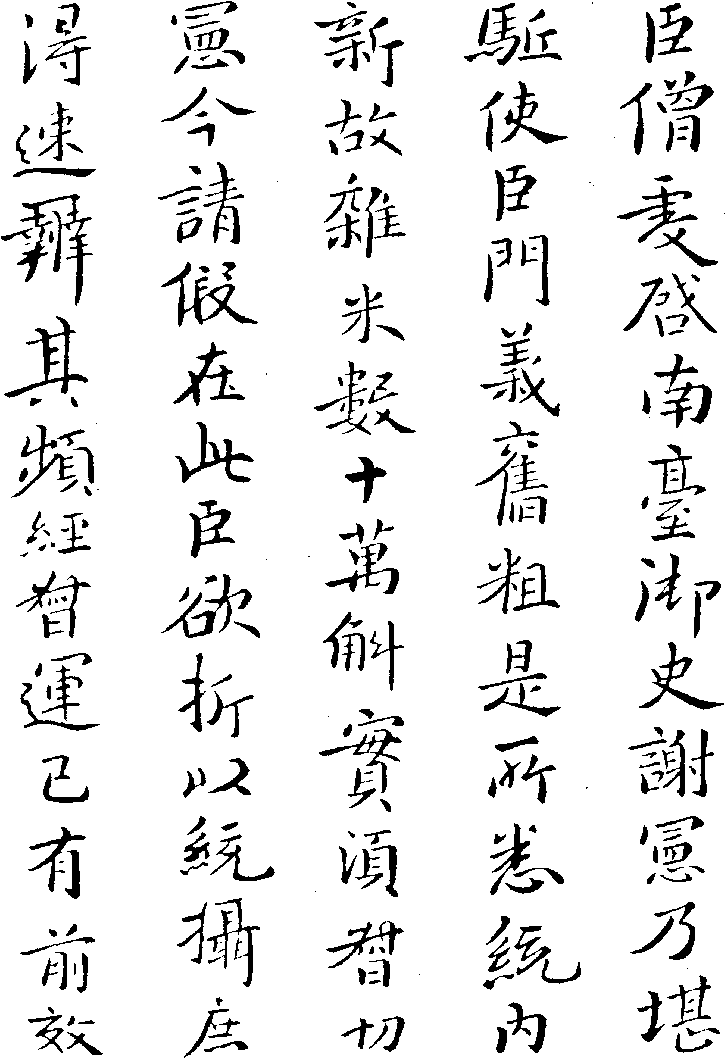 臣僧虔啓南臺御史謝憲乃堪
駈使臣門義舊粗是所悉統內
新故雜米數十萬斛實須督切
憲今請假在此臣欲折以統攝庶
得速辦其頻經督運已有前效